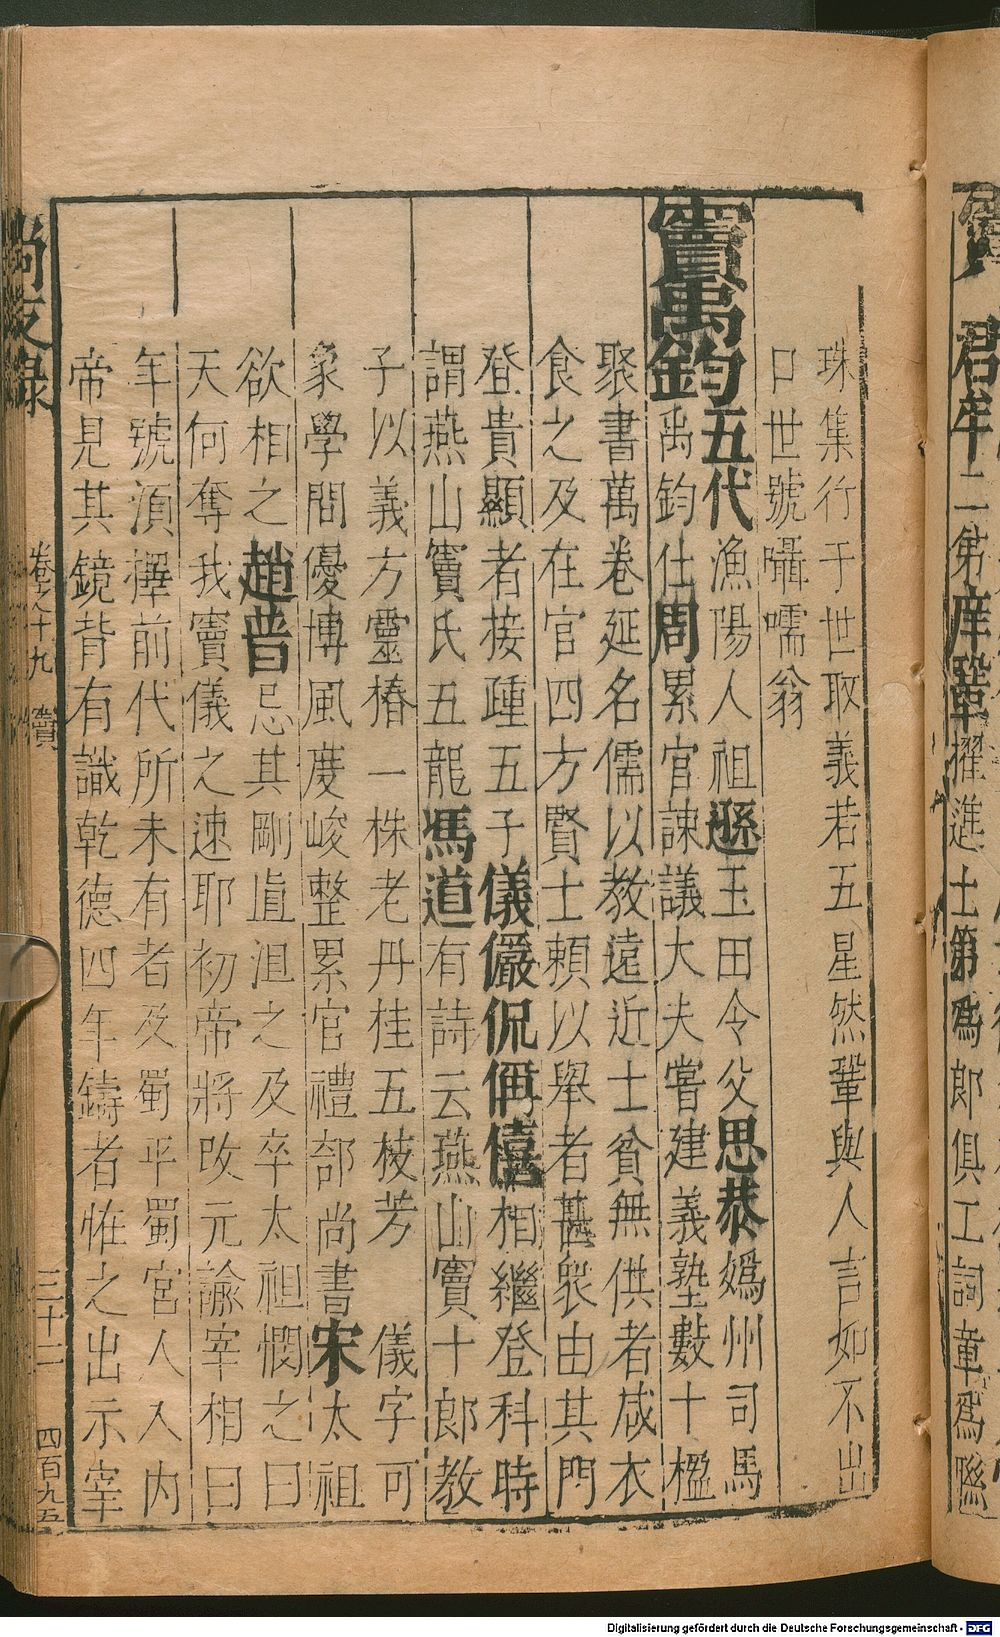 竇 君牟二弟庠鞏擢進士第爲郎俱工詞章爲聯
珠集行于世取義若五星然鞏與人言如不出
口世號囁嚅翁
竇禹鈞五代漁陽人祖遜玉田令父思恭媯州司馬
禹鈞仕周累官諫議大夫嘗建義塾數十楹
聚書萬卷延名儒以教遠近士貧無供者咸衣
食之及在官四方賢士頼以舉者甚衆由其門
登貴顯者接踵五子儀儼侃偁僖相繼登科時
謂燕山竇氏五龍馮道有詩云燕山竇十郎教
子以義方靈椿一株老丹桂五枝芳 儀字可
象學問優博風度峻整累官禮部尚書宋太祖
欲相之趙普忌其剛直沮之及卒太祖憫之曰
天何奪我竇儀之速耶初帝將改元諭宰相曰
年號須擇前代所未有者及蜀平蜀宮人入内
帝見其鏡背有識乾德四年鑄者恠之出示宰
尚友錄 卷之十九 竇 三十二 四百九五
Digitalisierung gefördert durch die Deutsche Forschungsgemeinschaft - DFG